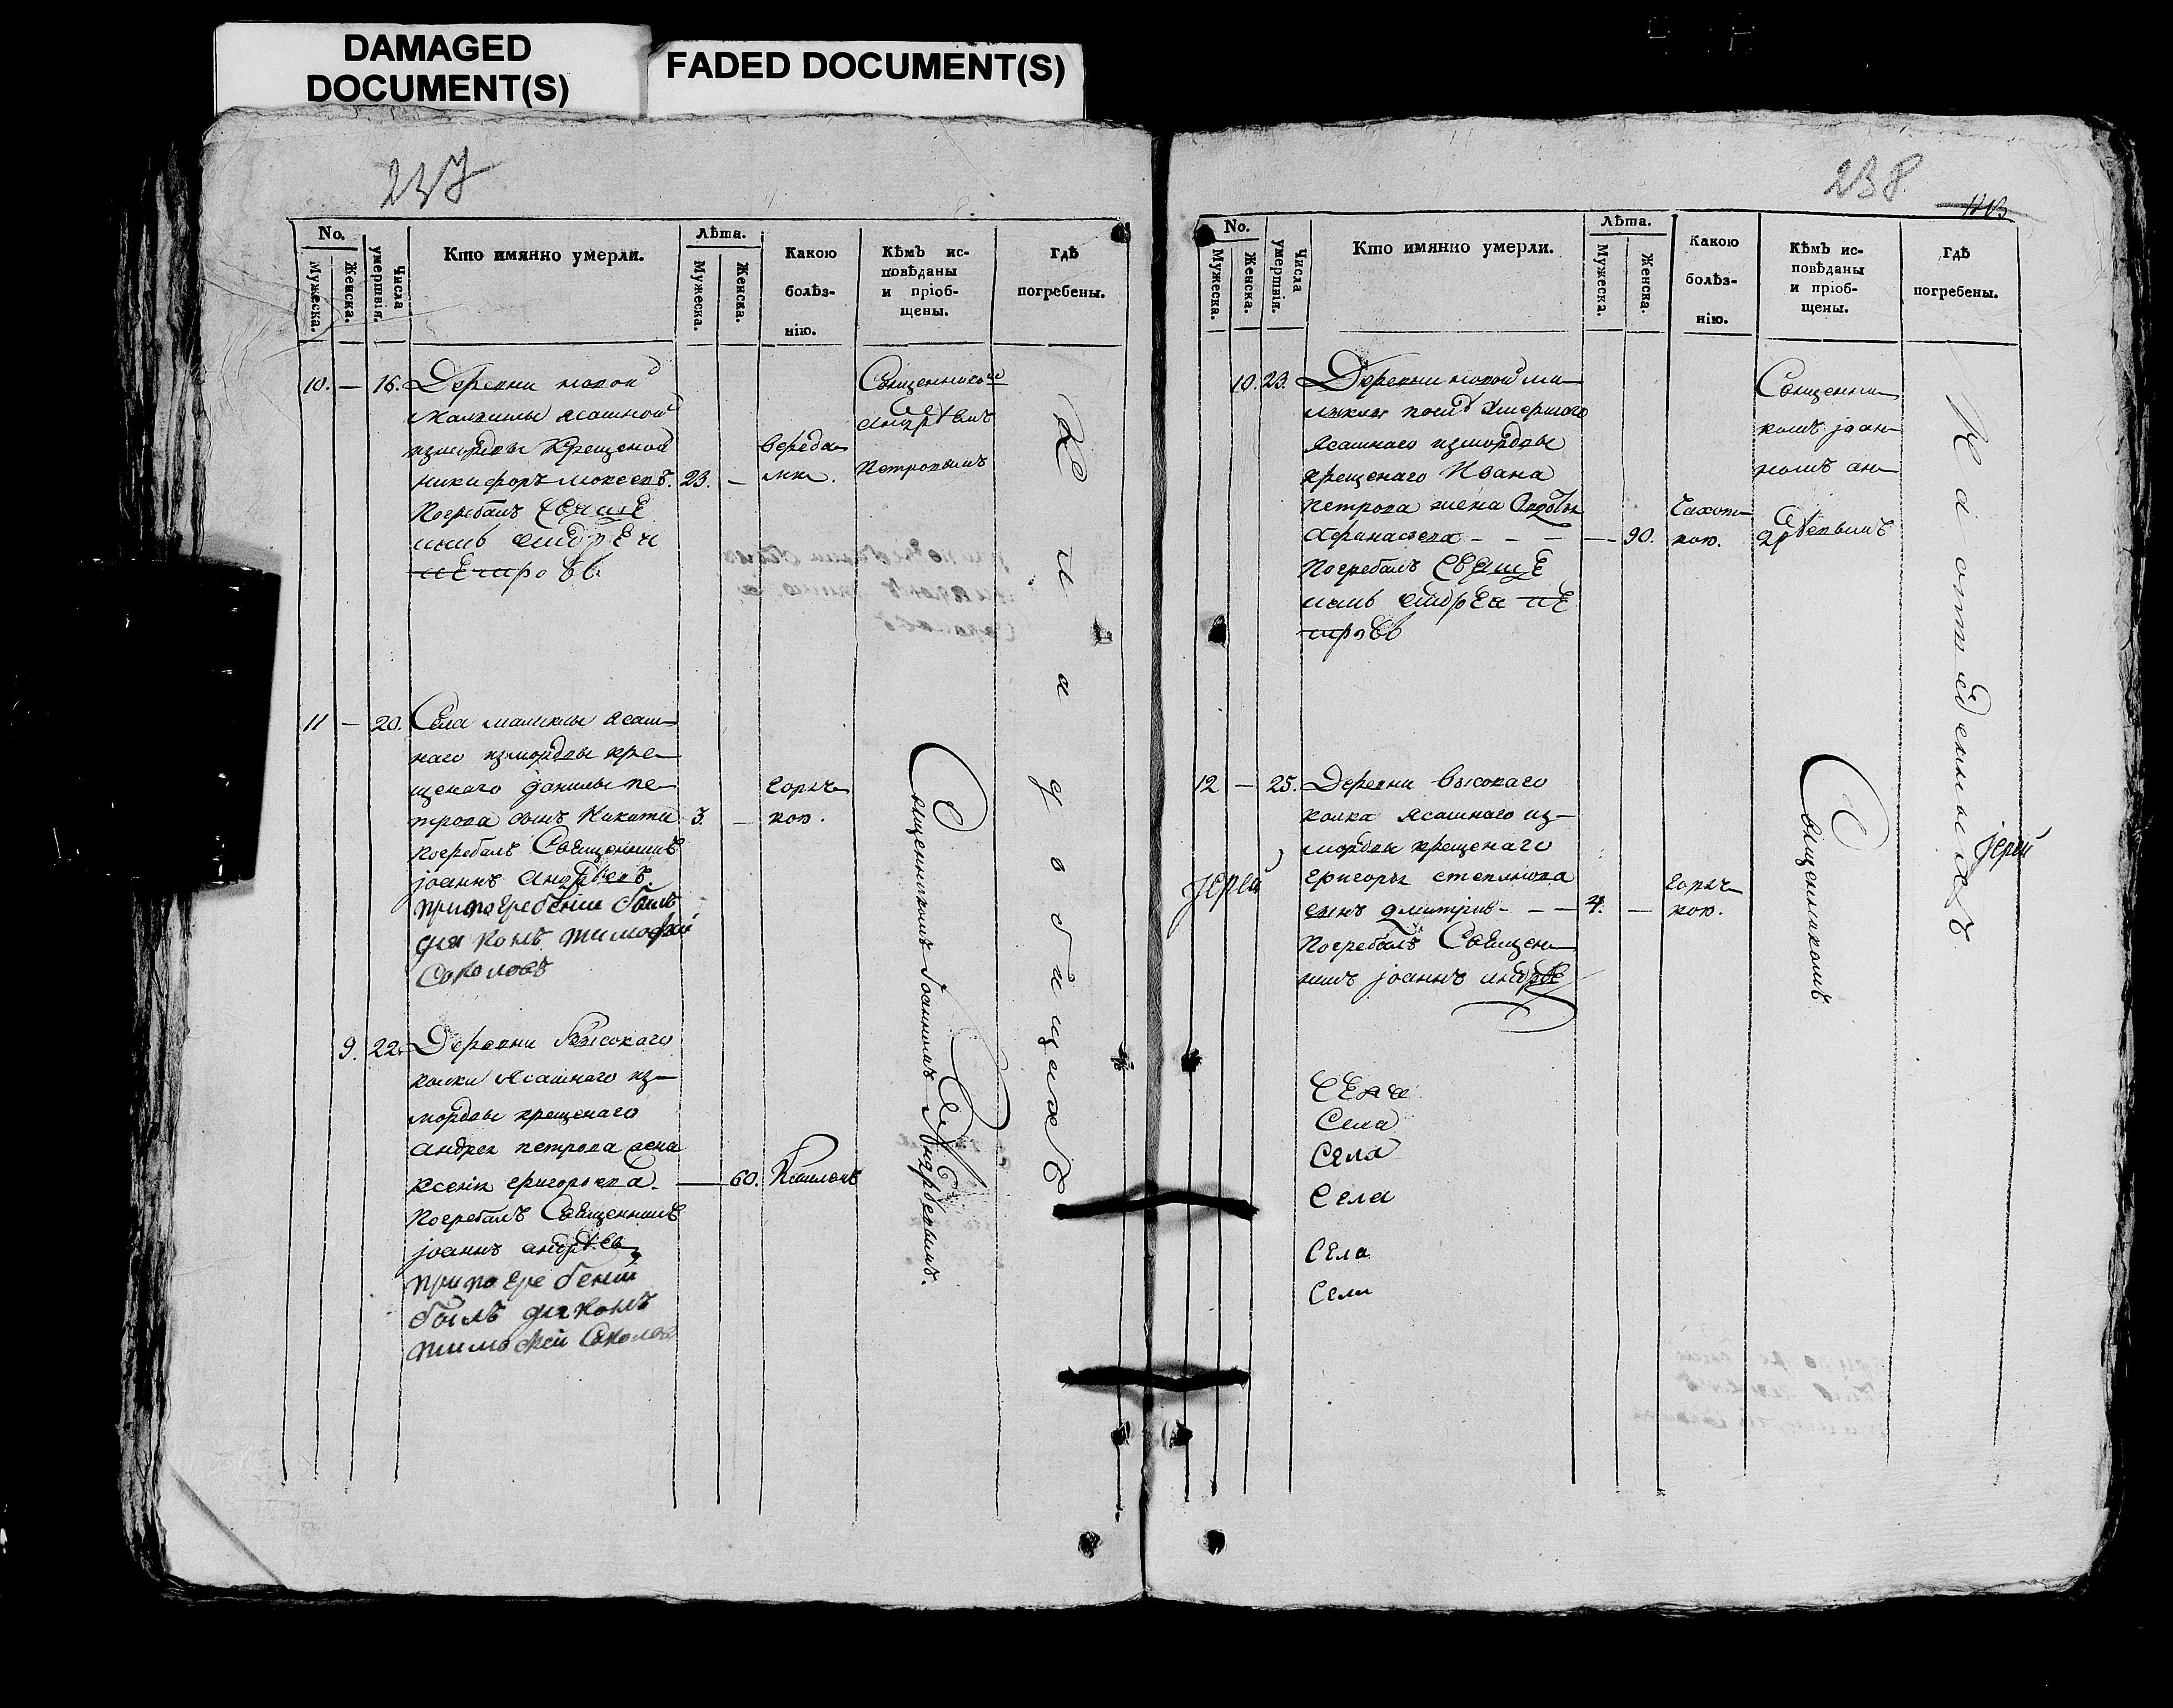 DAMAGED
DOCUMENT(S)
FADED DOCUMENT(S)
237
No.
Мужеска.
Женска.
Числа умертвія.
Кто имянно умерли.
Лѣта.
Мужеска.
Женска.
Какою
болѣз-
нію.
Кѣмъ ис-
повѣданы
и пріоб-
щены.
Гдѣ
погребены.
10. — 16. Деревни новой
малыклы ясашной
измордвы крещеной
никифоръ мокеевъ. 23. —
Погребалъ свяще
никъ андрей
петровъ
Священником
андреѣмъ
Петровымъ
11 — 20. Села малыклы ясаш—
наго измордвы кре—
щенаго данилы пе—
трова сынъ Никита 3. —
погребалъ Священникъ
іоаннъ андрѣевъ
припогребеніи былъ
диаконъ тимофей
Соколовъ
горяч—
кою.
9. 22. Деревни Высокаго
колка Ясашнаго из—
мордвы крещенаго
андрея петрова жена
ксенія григорьева. — 60. Кашлемъ
погребалъ Священникъ
іоаннъ андрѣев
припогребеніи
былъ диаконъ
тимофей Соколовъ
Священникомъ Іоанномъ Андрѣевымъ.
На кладбищахъ
238
No.
Мужеска.
Женска.
Числа умертвія.
Кто имянно умерли.
Лѣта.
Мужеска.
Женска.
Какою
болѣз-
нію.
Кѣмъ ис-
повѣданы
и пріоб-
щены.
Гдѣ
погребены.
10. 23. Деревни новой ма—
лыклы умершаго
Ясашнаго измордвы
крещенаго Ивана
петрова жена
Афанасьева — — — 90.
Погребалъ свяще
никъ андрей пе
тровъ
Чахот—
кою.
Священни—
комъ іоан—
номъ ан—
дрѣевымъ
12 — 25. Деревни Высокаго
колка Ясашнаго из—
мордвы крещенаго
григорья степанова
сынъ дмитрій — — 4. —
погребалъ Священ—
никъ іоаннъ андрѣе
горяч—
кою.
Священникомъ
На отведенныхъ
Іерей
Іерей
Села
Села
Села
Села
Села
Села